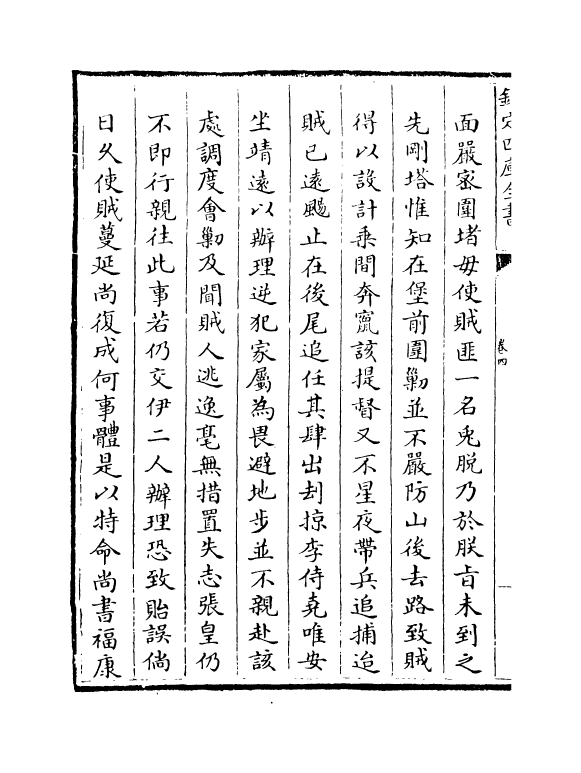 欽定四庫全書
卷四
面嚴密圍堵毋使賊匪一名兎脱乃於朕㫖未到之
先剛塔惟知在堡前圍勦並不嚴防山後去路致賊
得以設計乘間奔竄該提督又不星夜帶兵追捕迨
賊已遠颺止在後尾追任其肆出刦掠李侍堯唯安
坐靖遠以辦理逆犯家屬為畏避地步並不親赴該
處調度會勦及聞賊人逃逸毫無措置失志張皇仍
不即行親往此事若仍交伊二人辦理恐致貽誤倘
日久使賊蔓延尚復成何事體是以特命尚書福康